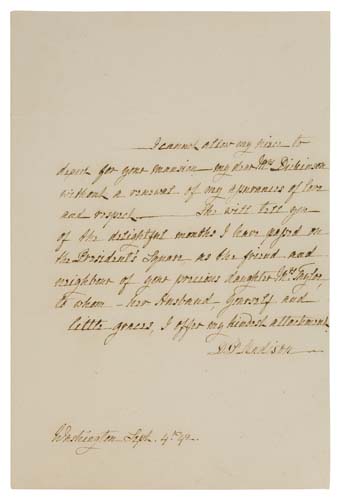 I cannot allow my niece to
depart for your mansion my dear Mrs Dickinson
without a renewal of my assurances of love
and respect. She will tell you
of the delightful months I have passed on
the President's Square as the friend and
neighbour of your precious daughter Mrs Tayloe,
to whom - her Husband yourself and
little graces, I offer my kindest attachment
D. P. Madison
Washington Sept. 4th 42.